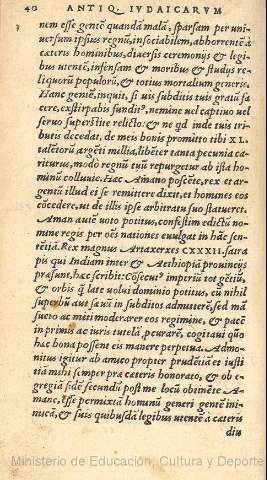 40 ANTIQ. IVDAICARVM
nem esse gentē quandā malā, sparsam per uni
uersum ipsius regnū, insociabilem, abhorrentē à
cæteris hominibus, diuersis ceremonijs & legi
bus utentē, infensam & moribus & studijs re
liquorū populorū, & totius mortalium generis.
Hanc gentē, inquit, si uis subditis tuis gratū fa
cere, exstirpabis funditꝰ, nemine uel captiuo uel
seruo superstite relicto: & ne qd inde tuis tri
butis decedat, de meis bonis promitto tibi XL.
talētorū argēti millia, libēter tanta pecunia ca
riturus, modo regnū tuū repurgetur ab ista ho
minū colluuie. Hæc Amano poscēte, rex et ar
gentū illud ei se remittere dixit, et homines eos
cōcedere, ut de illis ipse arbitratu suo statueret.
Aman autē uoto potitus, confestim edictū no
mine regis per oēs nationes euulgat in hāc sen
tētiā. Rex magnus Artaxerxes CXXXII. satra
pis qui Indiam inter & Aethiopiā prouincijs
præsunt, hæc scribit: Cōsecutꝰ imperiū tot gētiū,
& orbis q̄ late uolui dominio potitus, cū nihil
superbū aut sæuū in subditos admitterē, sed mā
sueto ac miti moderarer eos regimine, & pacē
in primis ac iuris tutelā ꝓcurarē, cogitaui quo
hæc bona possent eis manere perpetua. Admo
nitus igitur ab amico propter prudētiā et iusti
tiā mihi semper præ cæteris honorato, & ob e-
gregiā fidē secundū post me locū obtinēte A-
mane, esse permixtā humanū generi gentē ini
micā, & suis quibusdā legibus utentē à cæteris
diu
Ministerio de Educación, Cultura y Deporte